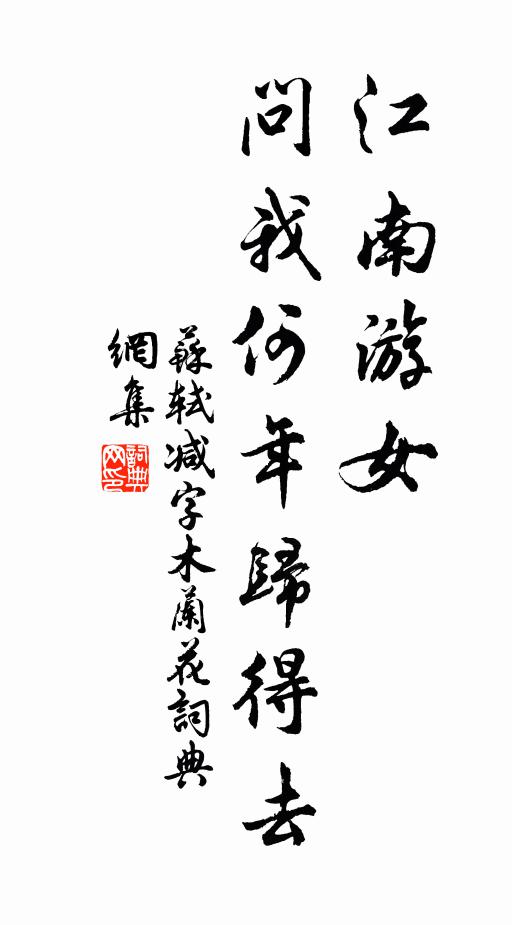 江南游女
問我何年歸得去
蘇軾减字木蘭花詞典
網集
詞典网印